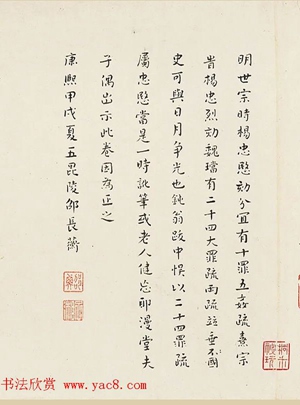 明世宗時楊忠愍劾分宜有十罪五姦疏熹宗
眥楊忠烈劾魏璫有二十四大罪疏兩疏並垂國
史可與日月爭光也鈍翁跋中悞以二十四罪疏
屬忠愍當是一時訛筆或老人健忘耶漫堂夫
子偶出示此卷因為正之
康熙甲戌夏五毘陵邵長蘅
书法欣赏 www.yac8.com